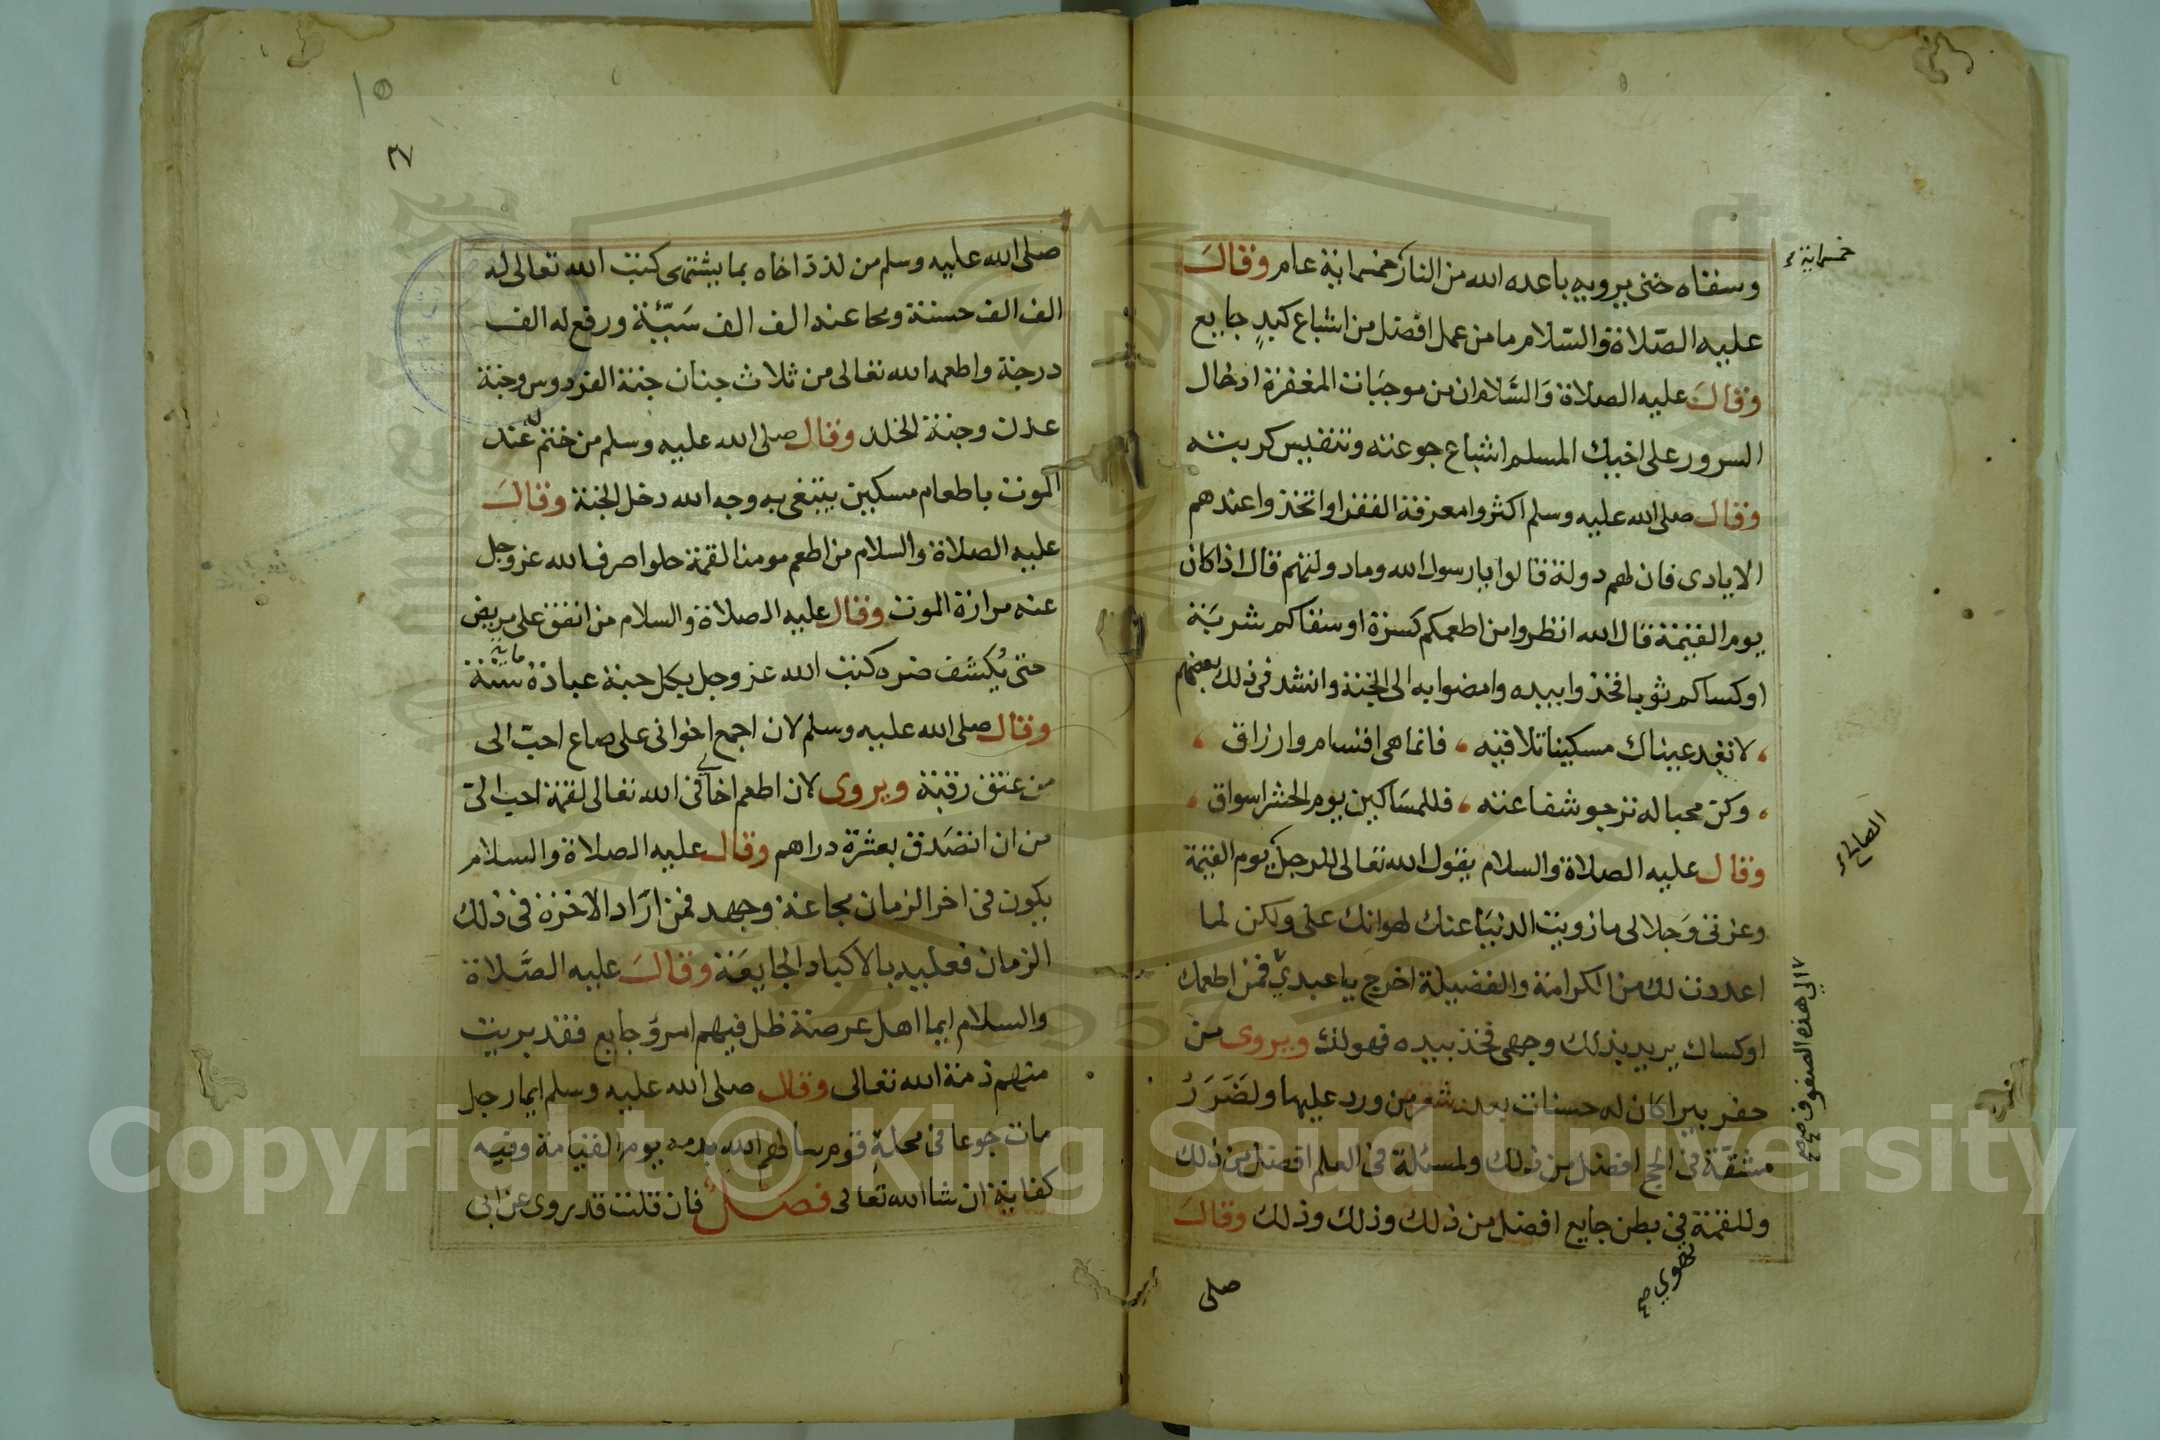 وسقاه حتى يرويه باعده الله من النار خمسماية عام وقال
عليه الصلاة والسلام ما من عمل افضل من اشباع كبدٍ جايع
وقال عليه الصلاة والسلام ان من موجبات المغفرة ادخال
السرور على اخيك المسلم اشباع جوعته وتنفيس كربته
وقال صلى الله عليه وسلم اكثروا معرفة الفقراء واتخذوا عندهم
الايادى فان لهم دولة قالوا يارسول الله وما دولتهم قال اذا كان
يوم القيمة قال الله انظروا من اطعمكم كسرة او سقاكم شربة
او كساكم ثوبا فخذوا بيده وامضوا به الى الجنة وانشد فى ذلك بعضهم
لا تفد عيناك مسكينا تلاقيه فانما هى اقسام وارزاق
وكن محبا له ترجو شفاعته فللمساكين يوم الحشر اسواق
وقال عليه الصلاة والسلام يقول الله تعالى للرجل يوم القيمة
وعزتى وجلالى ما زويت الدنيا عنك لهوانك على ولكن لما
اعددت لك من الكرامة والفضيلة اخرج يا عبدي فمن اطعمك
او كساك يريد بذلك وجهى فخذ بيده فهو لك ويروى من
حفر بيرا كان له حسنات بعدد شعر من ورد عليها ولضرر
مشقة فى الحج افضل من ذلك ولمسئلة فى العلم افضل من ذلك
وللقمة فى بطن جايع افضل من ذلك وذلك وذلك وقال
صلى
خمسماية
الصالح
الى هذه الصفوف صح
صلى الله عليه وسلم من لذذ اخاه بما يشتهى كتب الله تعالى له
الف الف حسنة ومحا عنه الف الف سيّئة ورفع له الف
درجة واطعمه الله تعالى من ثلاث جنان جنة الفردوس وجنة
عدن وجنة الخلد وقال صلى الله عليه وسلم من ختم له عند
الموت باطعام مسكين يبتغى به وجه الله دخل الجنة وقال
عليه الصلاة والسلام من اطعم مومنا لقمة حلوا صرف الله عز وجل
عنه مرارة الموت وقال عليه الصلاة والسلام من انفق على مريض
حتى يُكشف ضره كتب الله عز وجل بكل حبة عبادة ماية سنة
وقال صلى الله عليه وسلم لان اجمع اخوانى على صاع احبّ الى
من عتق رقبة ويروى لان اطعم اخا لي فى الله تعالى لقمة احب الىّ
من ان اتصدق بعشرة دراهم وقال عليه الصلاة والسلام
يكون فى اخر الزمان مجاعة وجهد فمن اراد الاخرة فى ذلك
الزمان فعليه بالاكباد الجايعة وقال عليه الصّلاة
والسلام ايما اهل عرصة ظل فيهم امرؤ جايع فقد بريت
منهم ذمة الله تعالى وقال صلى الله عليه وسلم ايما رجل
مات جوعا فى محلة قوم سالهم الله بدمه يوم القيامة وفيه
كفاية ان شا الله تعالى فصل فان قلت قد روى عن ابى
٣٧
Copyright © King Saud University
1957